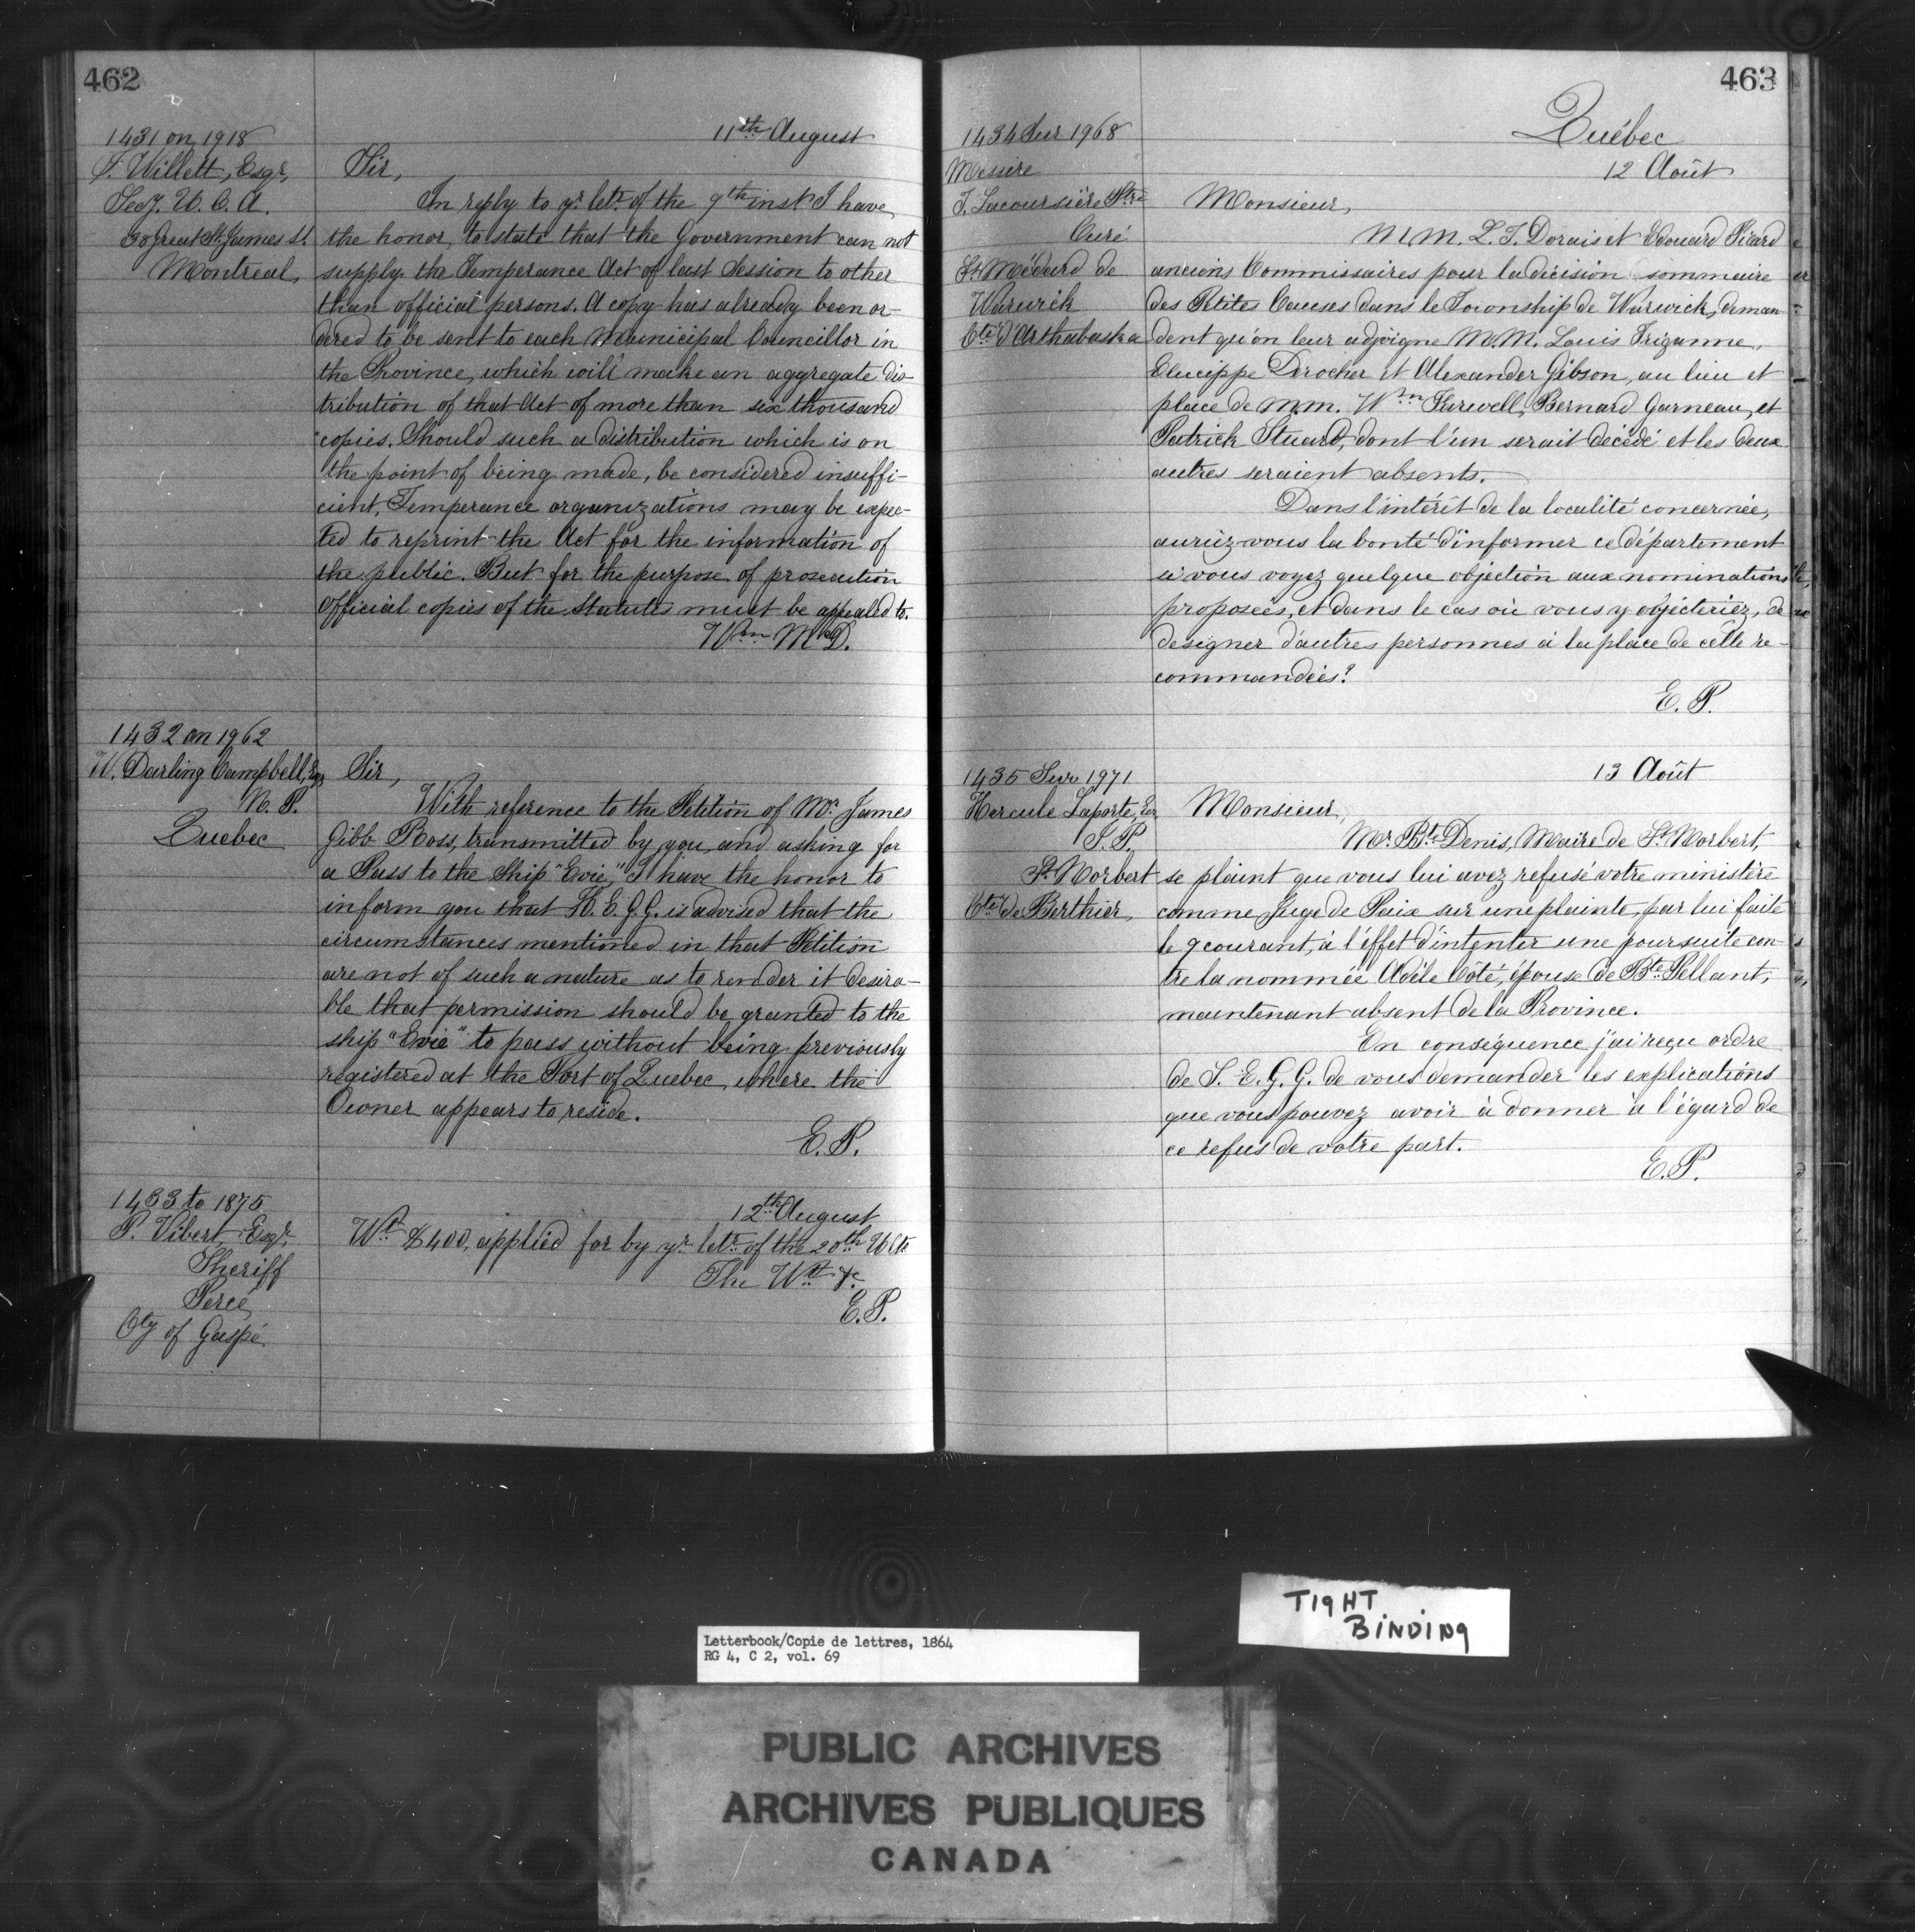 462
11th August
1431 on 1918
S. Willett, Esqr,
Secy. U. C. A.
30 Great St. James St.
Montreal,
Sir,
In reply to yr. letr. of the 9th inst. I have
the honor, to state that the Government can not
supply the Temperance Act of last Session to other
than official persons. A copy has already been or-
dered to be sent to each Municipal Councillor in
the Province, which will make an aggregate dis-
tribution of that Act of more than six thousand
copies. Should such a distribution which is on
the point of being made, be considered insuffi-
cient, Temperance organizations may be expec-
ted to reprint the Act for the information of
the public. But for the purpose of prosecution
official copies of the Statutes must be appealed to.
Wm McD.
1432 on 1962
W. Darling Campbell, Esqr
N. P.
Quebec
Sir,
With reference to the Petition of Mr. James
Gibb Ross, transmitted by you, and asking for
a Pass to the Ship "Evie," I have the honor to
inform you that H. E. G. G. is advised that the
circumstances mentioned in that Petition
are not of such a nature as to render it desira-
ble that permission should be granted to the
ship "Evie" to pass without being previously
registered at the Port of Quebec, where the
Owner appears to reside.
E. P.
1433 to 1875
P. Vibert, Esqr.
Sheriff
Percé
Cty of Gaspé
12th August
Wt. $400, applied for by yr. letr. of the 20th Ulto.
The Wt. &c.
E. P.
463
Québec
12 Août
1434 Sur 1968
Messire
J. Lacoursière Ptre
Curé
St. Médard de
Warwick
Cté. d'Arthabaska
Monsieur,
M.M. L. T. Dorais et Edouard Picard
anciens Commissaires pour la décision sommaire
des Petites Causes dans le Township de Warwick, deman
dent qu'on leur adjoigne M.M. Louis Triganne,
Eleucippe Derocher et Alexander Gibson, au lieu et
place de M.M. Wm Kirwell, Bernard Garneau, et
Patrick Stuard, dont l'un serait décédé et les deux
autres seraient absents.
Dans l'intérêt de la localité concernée,
auriez-vous la bonté d'informer ce département
si vous voyez quelque objection aux nominations
proposées, et dans le cas où vous y objecteriez, de
designer d'autres personnes à la place de celle re-
commandées?
E. P.
13 Août
1435 Sur 1971
Hercule Laporte, Ecr
J. P.
St. Norbert
Cté de Berthier,
Monsieur,
Mr. Bte. Denis, Maire de St. Norbert,
se plaint que vous lui avez refusé votre ministère
comme Juge de Paix sur une plainte, par lui faite
le 9 courant, à l'éffet d'intenter une poursuite con-
tre la nommée Adèle Côté, épouse de Bte. Pellant,
maintenant absent de la Province.
En conséquence j'ai reçu ordre
de S. E. G. G. de vous demander les explications
que vous pouvez avoir à donner à l'égard de
ce refus de votre part.
E. P.
TIGHT
BINDING
Letterbook/Copie de lettres, 1864
RG 4, C 2, vol. 69
PUBLIC ARCHIVES
ARCHIVES PUBLIQUES
CANADA